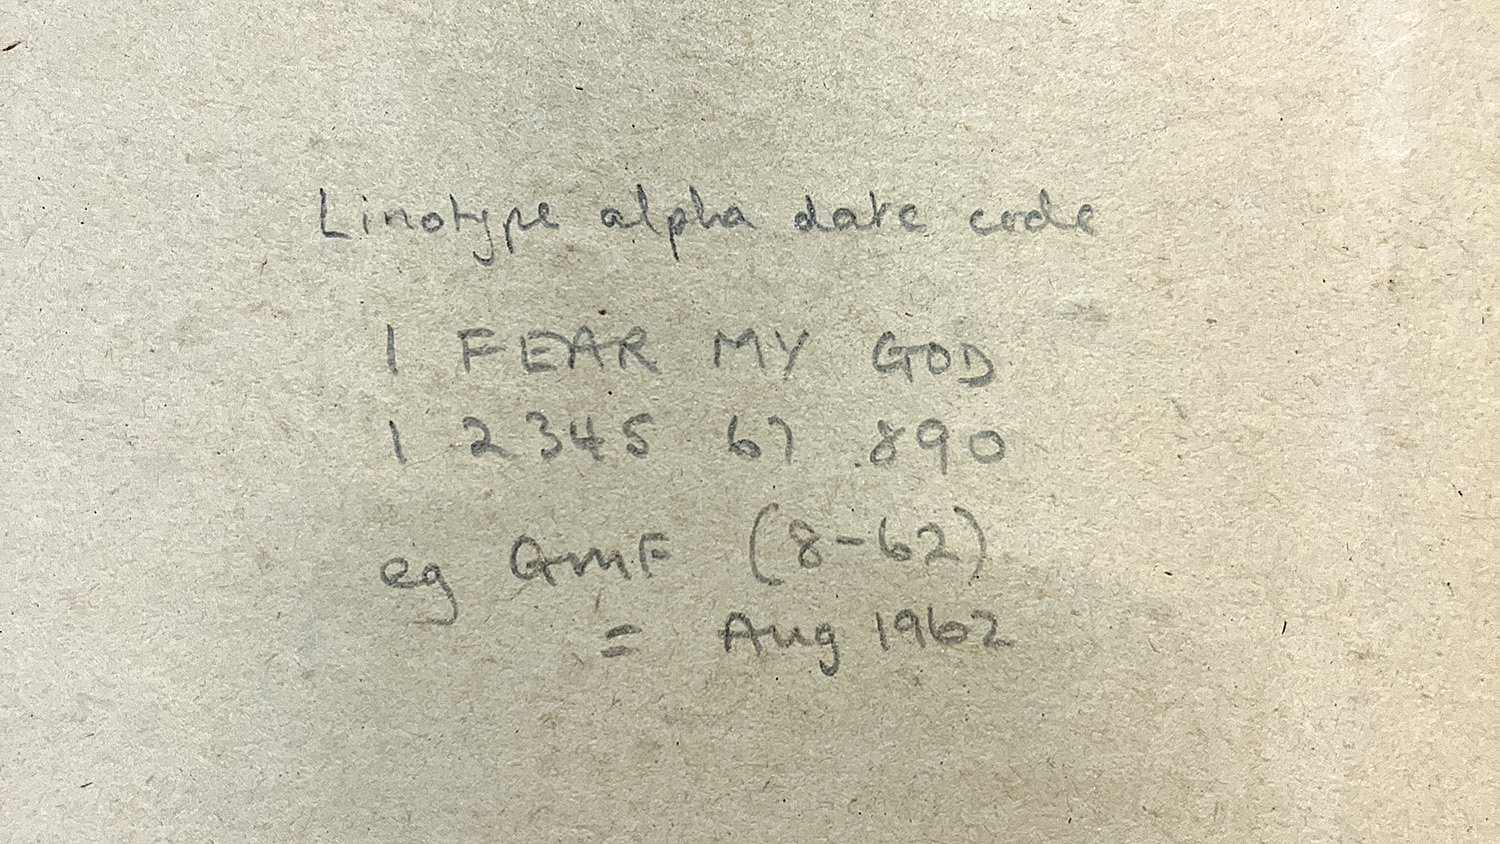 Linotype alpha date code
I FEAR MY GOD
1 2345 67 890
eg GMF (8-62)
= Aug 1962